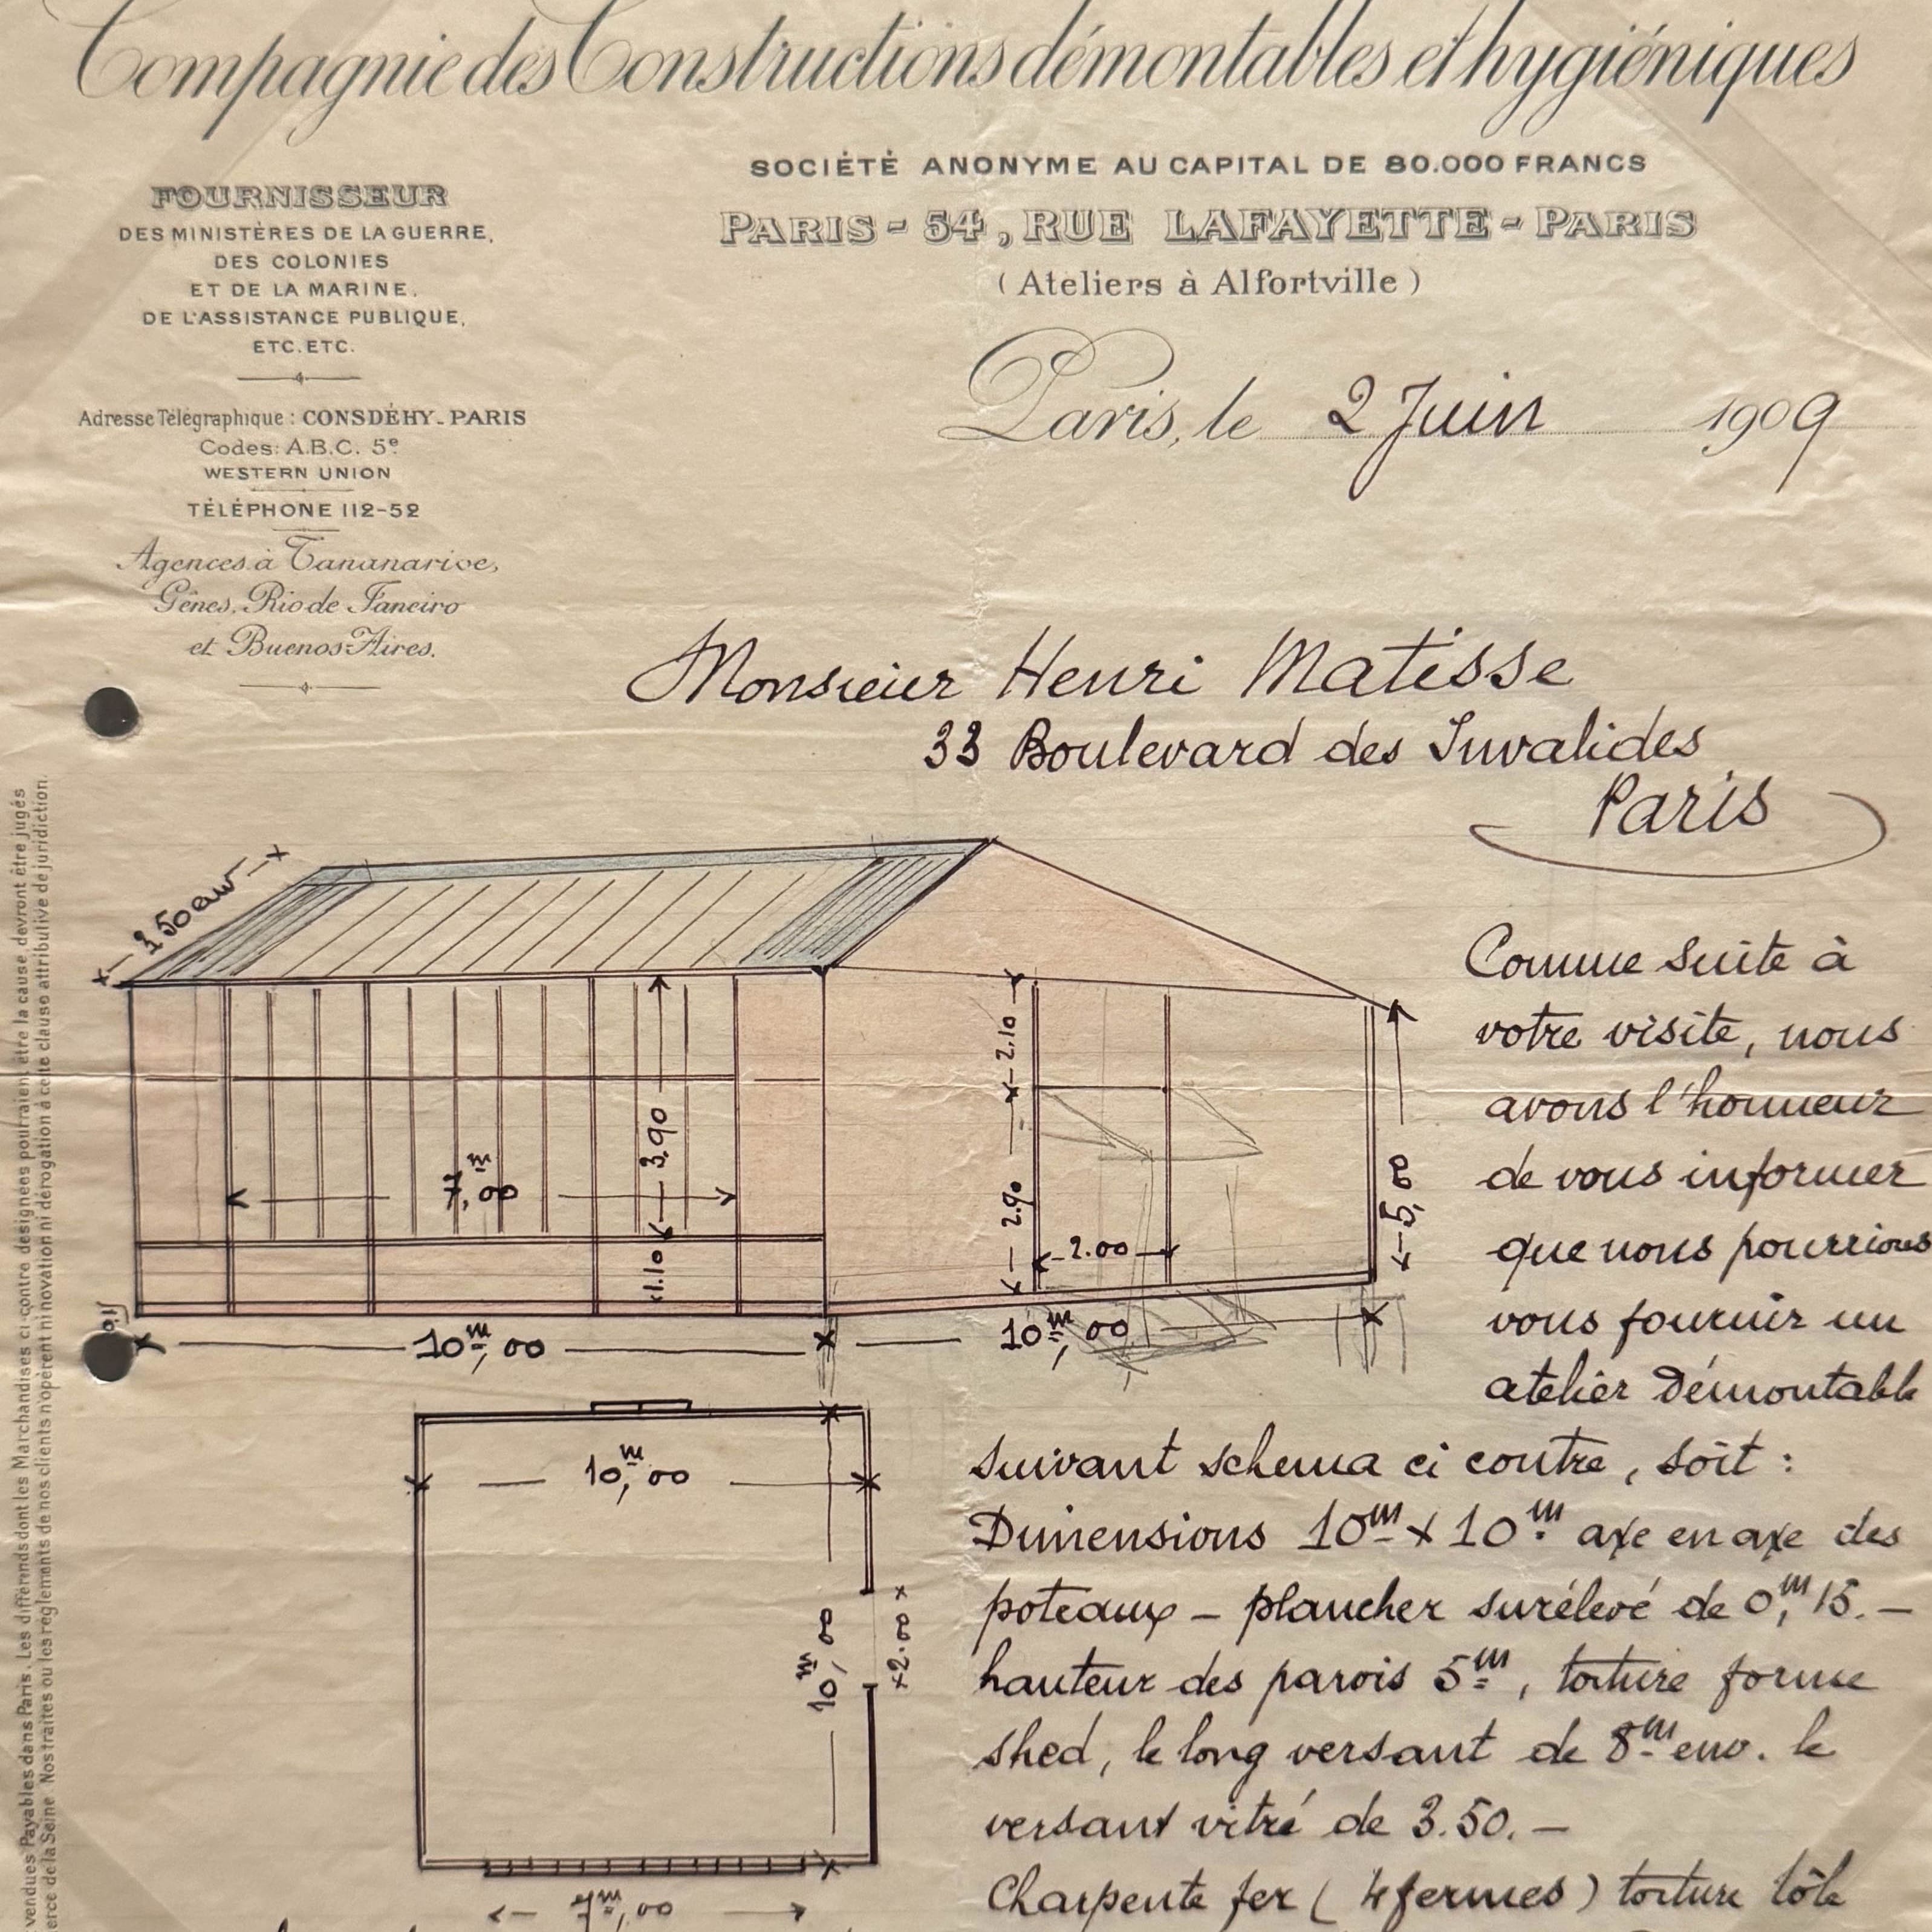 Compagnie des Constructions démontables et hygiéniques
SOCIÉTÉ ANONYME AU CAPITAL DE 80.000 FRANCS
PARIS - 54, RUE LAFAYETTE - PARIS
(Ateliers à Alfortville)
FOURNISSEUR
DES MINISTÈRES DE LA GUERRE,
DES COLONIES
ET DE LA MARINE,
DE L'ASSISTANCE PUBLIQUE,
ETC. ETC.
Adresse Télégraphique : CONSDÉHY-PARIS
Codes: A.B.C. 5e
WESTERN UNION
TÉLÉPHONE 112-52
Agences à Tananarive,
Gênes, Rio de Janeiro
et Buenos-Aires.
Paris, le 2 Juin 1909
Monsieur Henri Matisse
33 Boulevard des Invalides
Paris
3.50 env
2.10
3.90
7m,00
2.90
5,00
2.00
1.10
10m,00
10m,00
Comme suite à
votre visite, nous
avons l'honneur
de vous informer
que nous pourrions
vous fournir un
atelier Démontable
suivant schema ci contre, soit :
Dimensions 10m x 10m axe en axe des
poteaux – plancher surélevé de 0,m15. –
hauteur des parois 5m, toiture forme
shed, le long versant de 8m env. le
versant vitré de 3.50. –
Charpente fer ( 4 fermes ) toiture tôle
10m,00
10m,00
2.00
7m,00
vendues Payables dans Paris. Les différends dont les Marchandises ci-contre désignées pourraient être la cause devront être jugés
erce de la Seine. Nos traites ou les règlements de nos clients n'opèrent ni novation ni dérogation à cette clause attributive de juridiction.